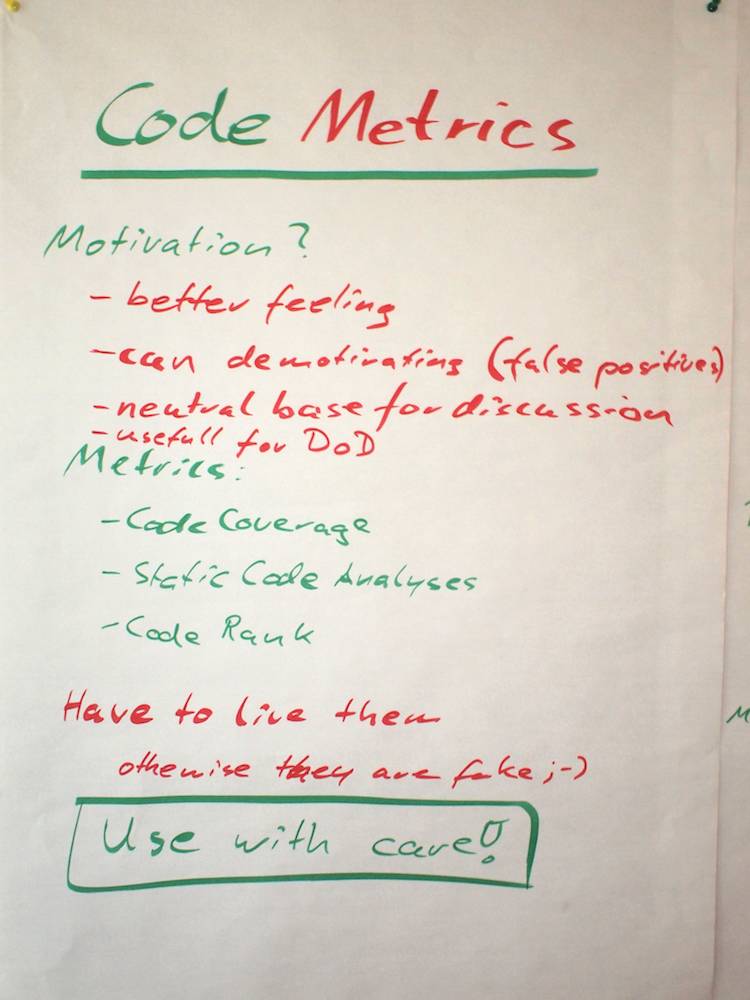 Code Metrics
Motivation?
- better feeling
- can demotivating (false positives)
- neutral base for discussion
- usefull for DoD
Metrics:
- Code Coverage
- Static Code Analyses
- Code Rank
Have to live them
otherwise they are fake ;-)
Use with care!